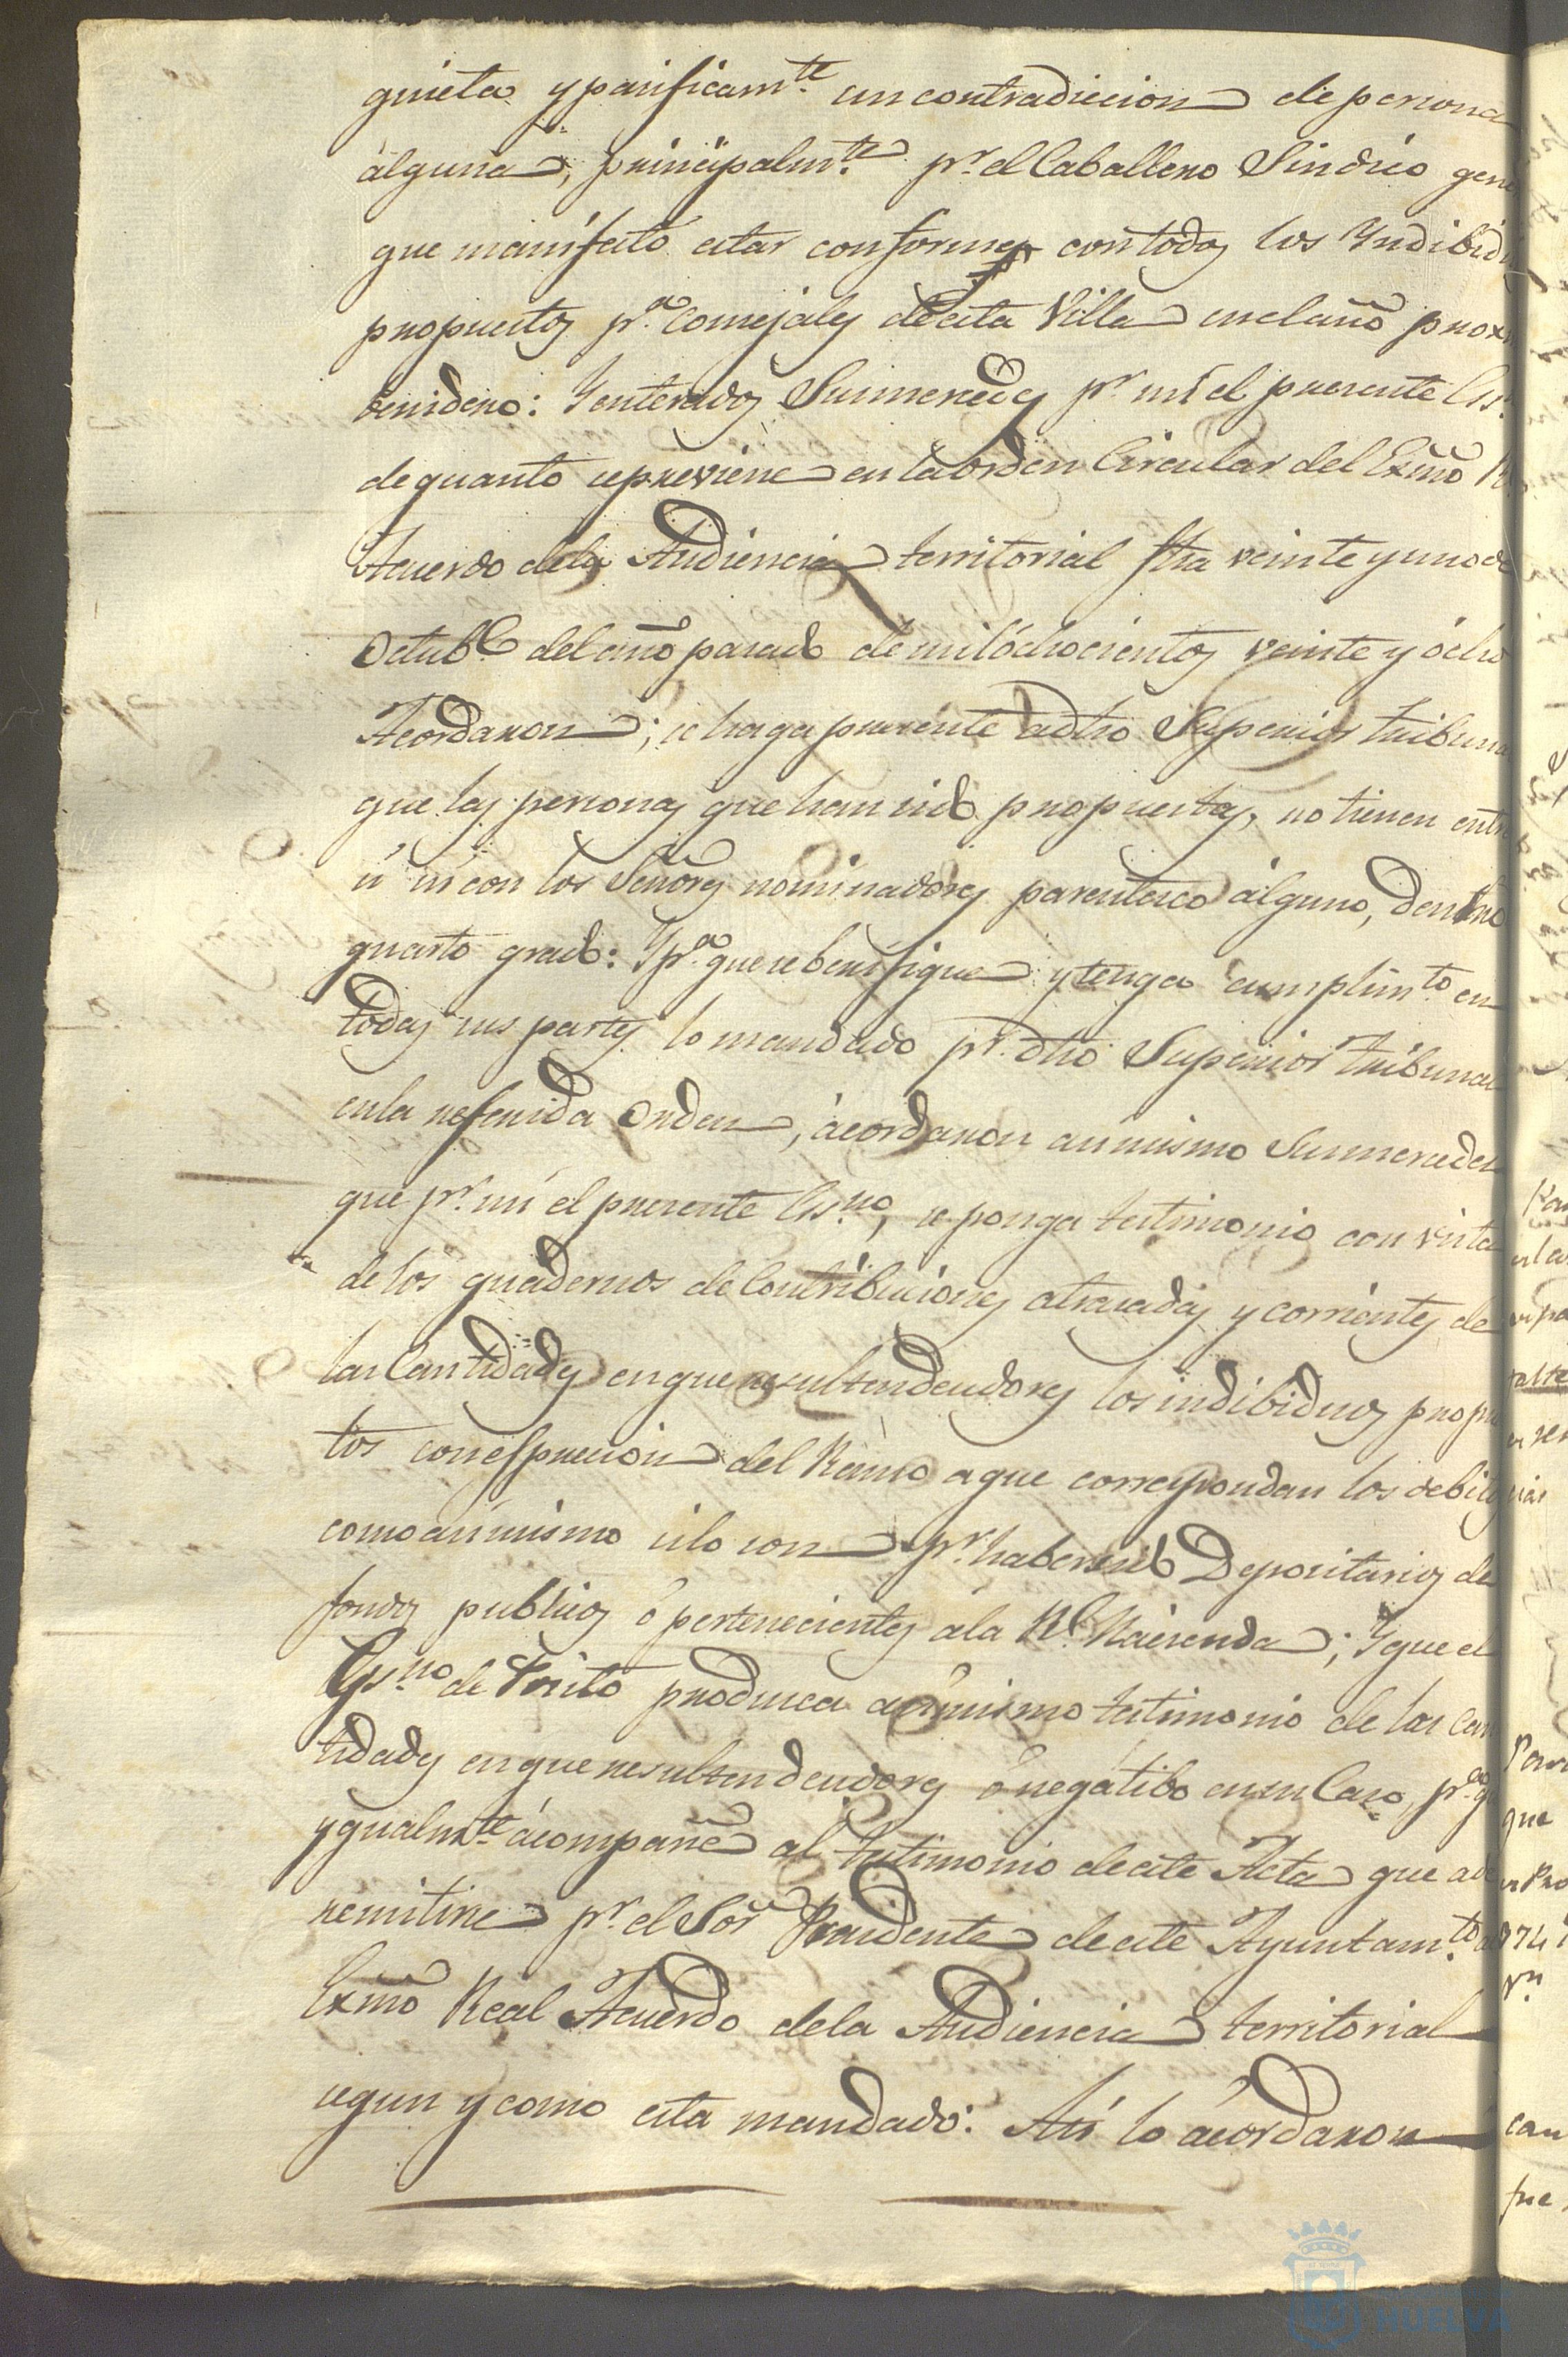 quieta y pacificamte. sin contradiccion de persona
alguna, principalmte. pr. el Caballero Sindico gene
que manifestó estar conforme con todos los Yndibidu
propuestos pa. Concejales de esta Villa en el año proxi
benidero: Y enterados Sus mercedes pr. mi el presente Es.
de quanto se previene en la orden Circular del Exmo R.
Acuerdo de la Audiencia territorial fha veinte y uno de
Octube del año pasado de mil óchocientos veinte y ócho
Acordaron; se haga presente a dho Superior tribuna
que las personas que han sido propuestas, no tienen entre
si ni con los Señores nominadores parentesco álguno, dentro
quarto grado: Y pa. que se berifique y tenga cumplimto. en
todas sus partes lo mandado pr. dho Superior tribunal
en la referida Orden, ácordaron asi mismo Sus mercedes
que pr. mi el presente Esno., se ponga testimonio con vista
de los quadernos de Contribuciones atrasadas y corrientes de
las Cantidades en que resulten deudores los indibiduos propu
tos con espresion del Ramo a que correspondan los debitos
como asimismo si lo son pr. haber sido Depositarios de
fondos publicos ó pertenecientes a la Rl. Hacienda; Y que el
Esno. de Pósito produzca asi mismo testimonio de las Can
tidades en que resulten deudores ó negatibo en su Caso, pa. q
ygualmte. ácompañe al testimonio de este Acta que a de
remitirse pr. el Sor Presidente de este Ayuntamto. al
Exmo Real Acuerdo de la Audiencia territorial
segun y como esta mandado: Asi lo ácordaron
HUELVA